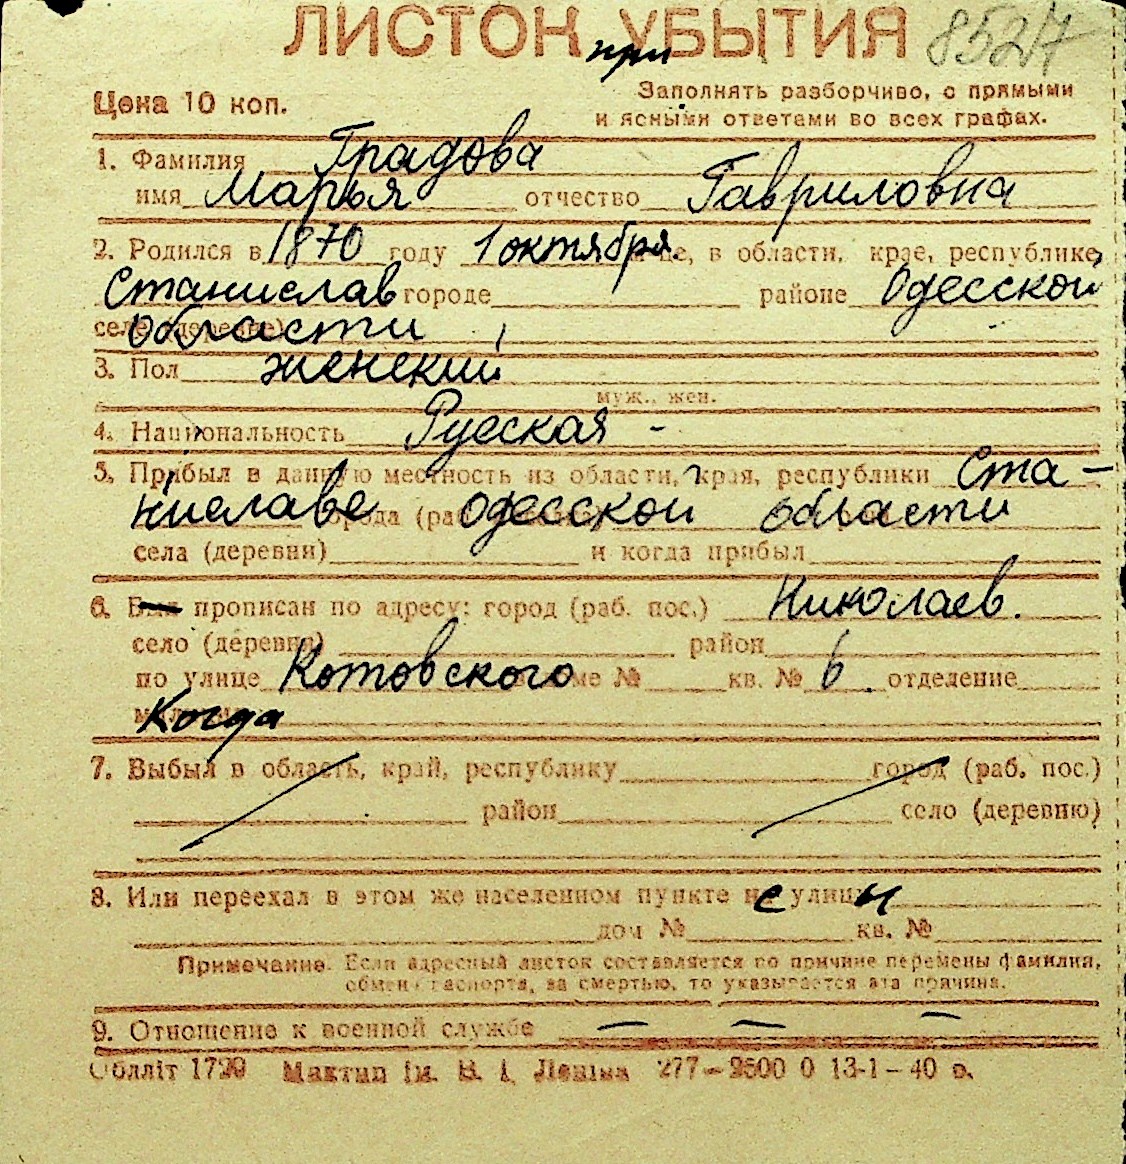 ЛИСТОК УБЫТИЯ 8527
при
Цена 10 коп.
Заполнять разборчиво, с прямыми
и ясными ответами во всех графах.
1. Фамилия Градова
имя Марья отчество Гавриловна
2. Родился в 1870 году 1 октября це, в области, крае, республике,
Станислав городе районе Одесской
селе (деревне) области
3. Пол женский
муж., жен.
4. Национальность Русская -
5. Прибыл в данную местность из области, края, республики Ста-
ниславе города (раб. Одесской области
села (деревни) и когда прибыл
6. Был прописан по адресу: город (раб. пос.) Николаев.
село (деревня) район
по улице Котовского ме № кв. № 6 отделение
Когда
7. Выбыл в область, край, республику город (раб. пос.)
район село (деревню)
8. Или переехал в этом же населенном пункте с улицы
дом № кв. №
Примечание. Если адресный листок составляется по причине перемены фамилии,
обмен паспорта, за смертью, то указывается эта причина.
9. Отношение к военной службе — — —
Облліт 1729 Мактип ім. В. І. Леніна 277—2500 0 13-1—40 р.